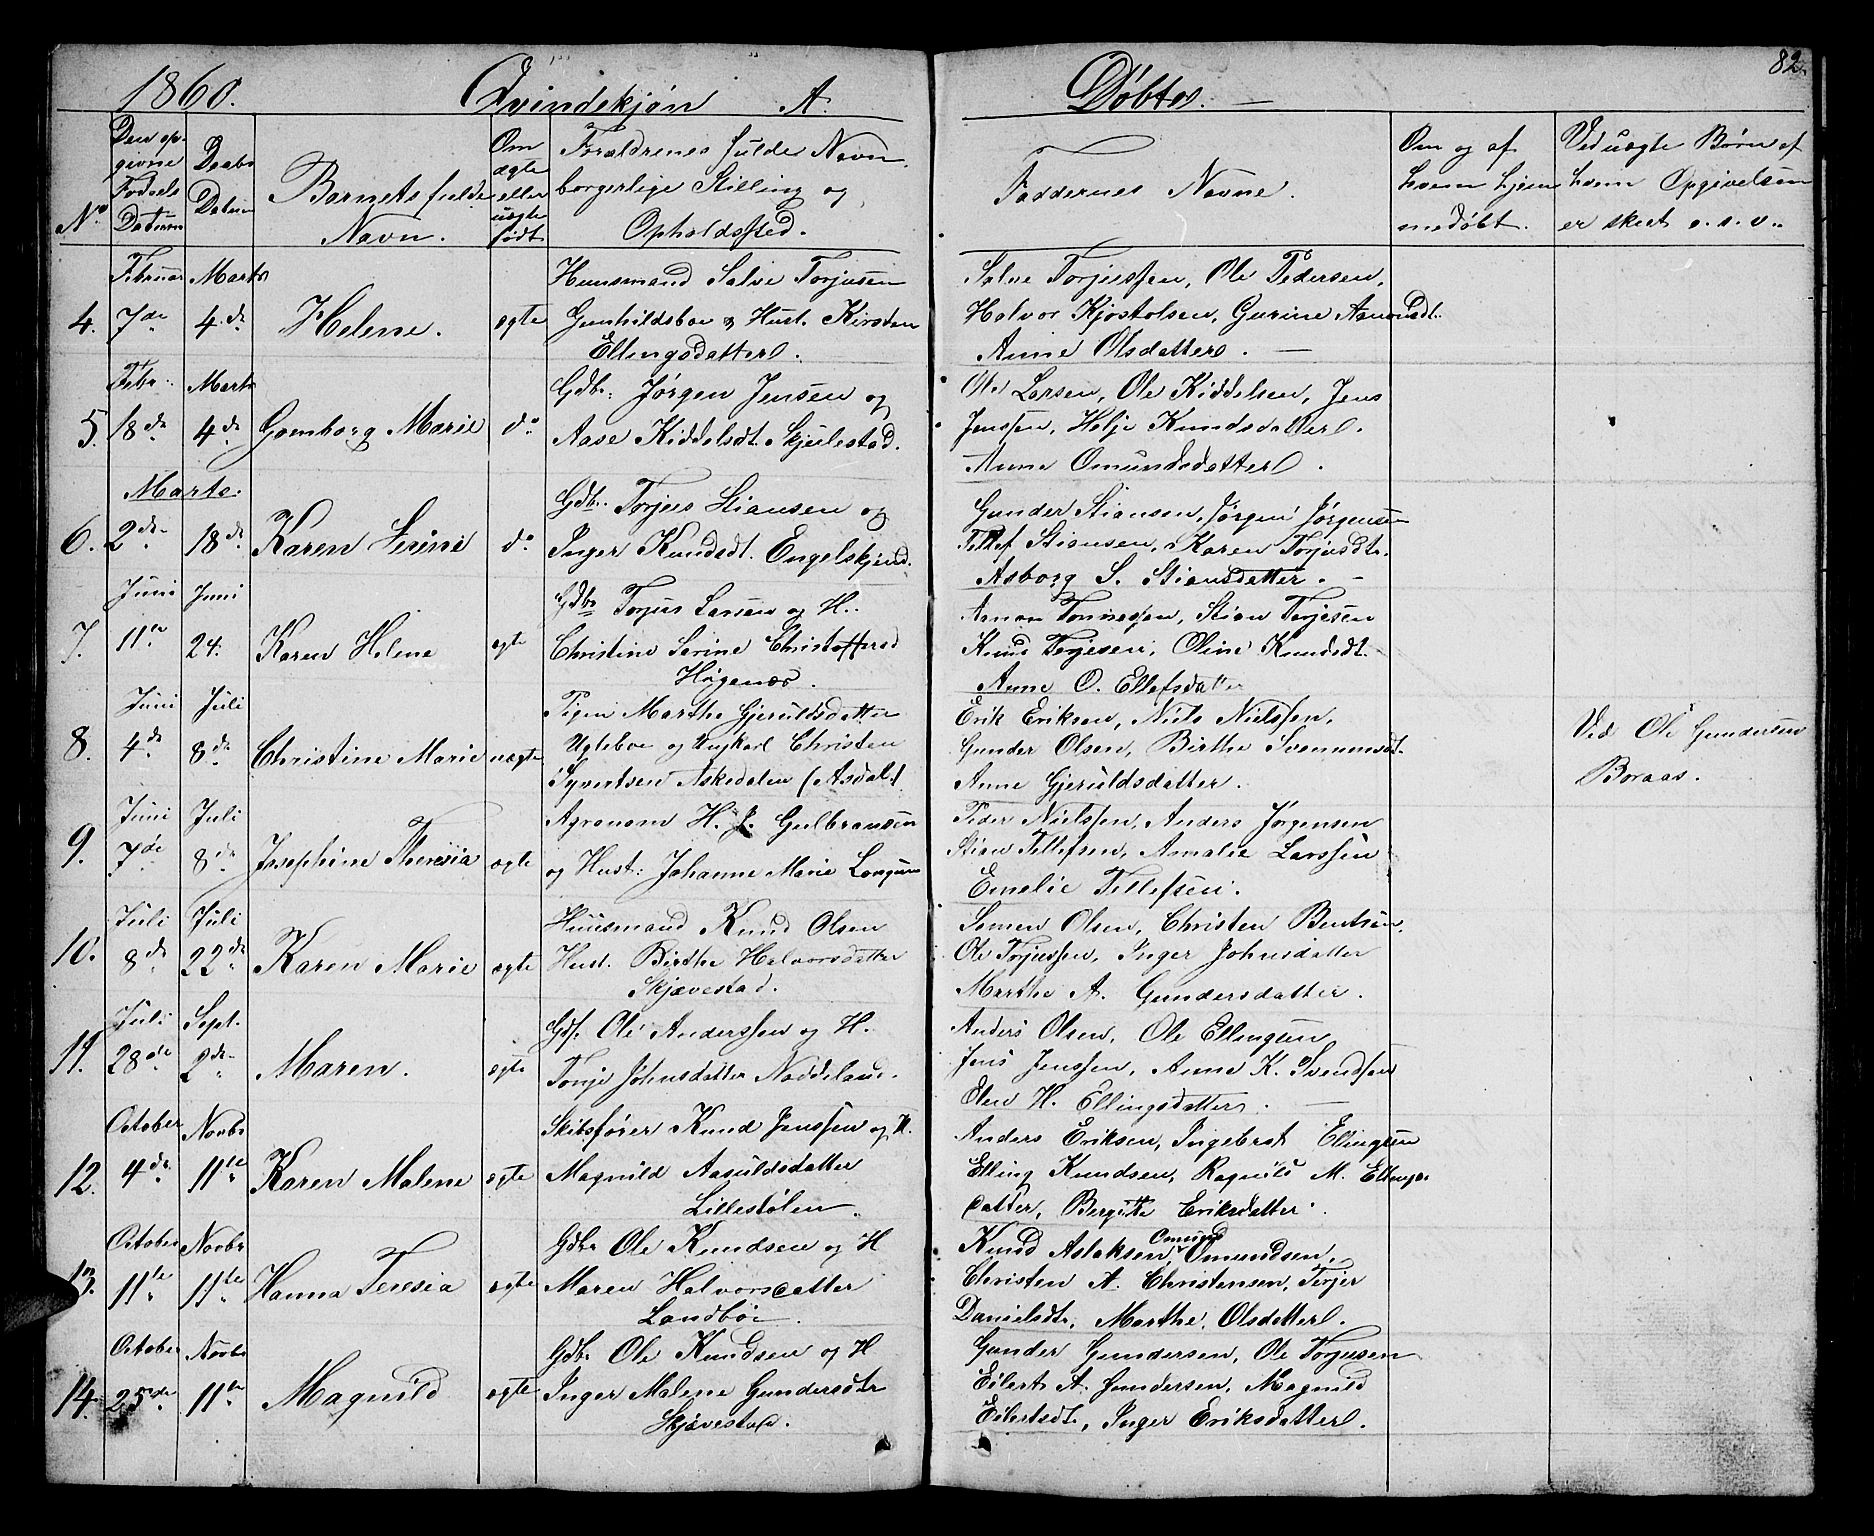 1860.
Qvindekjøn A.
Døbte.
82.
No
Den op-
givne
Fødsels
Datum
Daabs
Datum
Barnets fulde
Navn.
Om
ægte
eller
uægte
født
Forældrenes fulde Navn
borgerlige Stilling og
Opholdssted.
Faddernes Navne.
Om og af
hvem hjem
medøbt.
Ved uægte Børn af
hvem Opgivelsen
er skeet o.s.v.
4.
Februar
7de
Marts
4de
Helene.
ægte
Huusmand Salve Torjusen
Gunhildsboe & Hust. Kirsten
Ellingsdatter.
Salve Torjussen, Ole Pedersen,
Halvor Kjøstolsen, Gurine Aanondt.
Anne Olsdatter.
5.
Febr.
18de
Marts
4de
Gomborg Marie
do
Gdbr. Jørgen Jensen og
Aase Kiddelsdt. Skjulestad.
Ole Larsen, Ole Kiddelsen, Jens
Jenssen, Helje Knudsdatter.
Anne Omundsdatter.
6.
Marts
2de
18de
Karen Serine
do
Gdbr. Torjus Stiansen og
Inger Knudsdt. Engelskjend.
Gunder Stiansen, Jørgen Jørgensen
Tellef Stiansen, Karen Torjusdtr.
Asborg S. Stiansdatter.
7.
Juni
11te
Juni
24.
Karen Helene
ægte
Gdbr Torjus Larsen og H.
Christine Serine Christoffersd
Høgenæs.
Aanon Tønnessen, Stian Torjesen
Knud Terjesen, Oline Knudsdt.
Anne O. Ellefsdatter
8.
Juni
4de
Juli
8de
Christine Marie
uægte
Pigen Marthe Gjeruldsdatter
Ugleboe og Ungkarl Christen
Syvertsen Askedalen (Asdal.)
Erik Eriksen, Niels Nielssen,
Gunder Olsen, Birthe Svenumsdt.
Anne Gjeruldsdatter.
Ved Ole Gundersen
Boraas.
9.
Juni
7de
Juli
8de
Josephine Theresia
ægte
Agronom H. J. Gulbransen
og Hust: Johanne Marie Longum
Peder Nielssen, Anders Jørgensen
Stian Tellefsen, Amalie Larssen
Emelie Tellefsen.
10.
Juli
8de
Juli
22de
Karen Marie
ægte
Huusmand Knud Olsen
Hust. Birthe Halvorsdatter
Skjævestad.
Semen Olsen, Christen Bentsen,
Ole Torjussen, Inger Johnsdatter
Marthe A. Gundersdatter.
11.
Juli
28de
Sept.
2de
Maren.
ægte
Gdf. Ole Anderssen og H.
Tonje Johnsdatter Naddeland.
Anders Olsen, Ole Ellingsen
Jens Jenssen, Anne K. Svendsen
Elen H. Ellingsdatter.
12.
October
4de
Novbr
11te
Karen Malene
ægte
Skibsfører Knud Jenssen og H.
Magnild Aasuldsdatter
Lillestølen.
Anders Eriksen, Ingebret Ellingsen
Elling Knudsen, Ragnild M. Ellings-
datter, Bergitte Eriksdatter.
13.
October
11te
Novbr
11te
Hanna Teresia
ægte
Gdbr Ole Knudsen og H
Maren Halvorsdatter
Landbøe.
Omund
Knud Aslaksen, Omundsen,
Christen A. Christensen, Terjer
Danielsdt., Marthe Olsdatter.
14.
October
25de
Novbr
11te
Magnild
ægte
Gdbr Ole Knudsen og H
Inger Malene Gundersdtr
Skjævestad.
Gunder Gundersen, Ole Torjusen
Eilert A. Gundersen, Magnild
Eilertsdt., Inger Eriksdatter.